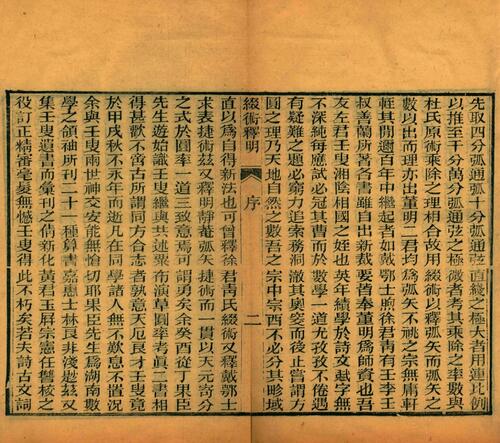 先取四分弧通弦十分弧通弦直綫之極大者用連比例
以推至千分萬分弧通弦之極微者考其乘除之率數與
杜氏原術乘除之理相合故用綴術以釋弧矢而弧矢之
數以出而理亦出董明二君均爲弧矢不祧之宗無庸軒
輊其間邇百年中繼起者如戴鄂士煦徐君青有壬李壬
叔善蘭所著各書雖自出新裁要皆奉董明爲師資也吾
友左君壬叟湘陰相國之姪也英年績學於詩文賦字無
不深純每應試必冠其曹而於數學一道尤孜孜不倦遇
有疑難之題必窮力追索務洞澈其奧窔而後止嘗謂方
圓之理乃天地自然之數吾之宗中宗西不必分其畛域
綴術釋明 序 二
直以爲自得新法也可曾釋徐君青氏綴術又釋戴鄂士
求表捷術茲又釋明靜菴弧矢捷術而一貫以天元寄分
之式於圓率一道三致意焉可謂勇矣余癸酉從丁果臣
先生遊始識壬叟繼與共述粟布演草圓率考眞二書相
得甚歡不啻古所謂同方合志者孰意天厄良才壬叟竟
於甲戌秋不永年而逝凡在同學諸人無不歎息不置況
余與壬叟兩世神交安能無恤切耶果臣先生爲湖南數
學之領袖所刊二十一種算書嘉惠士林良非淺尠茲又
集壬叟遺書而彙刊之倩新化黃君玉屏宗憲任讎校之
役訂正精審毫髮無憾壬叟得此不朽矣若夫詩古文詞